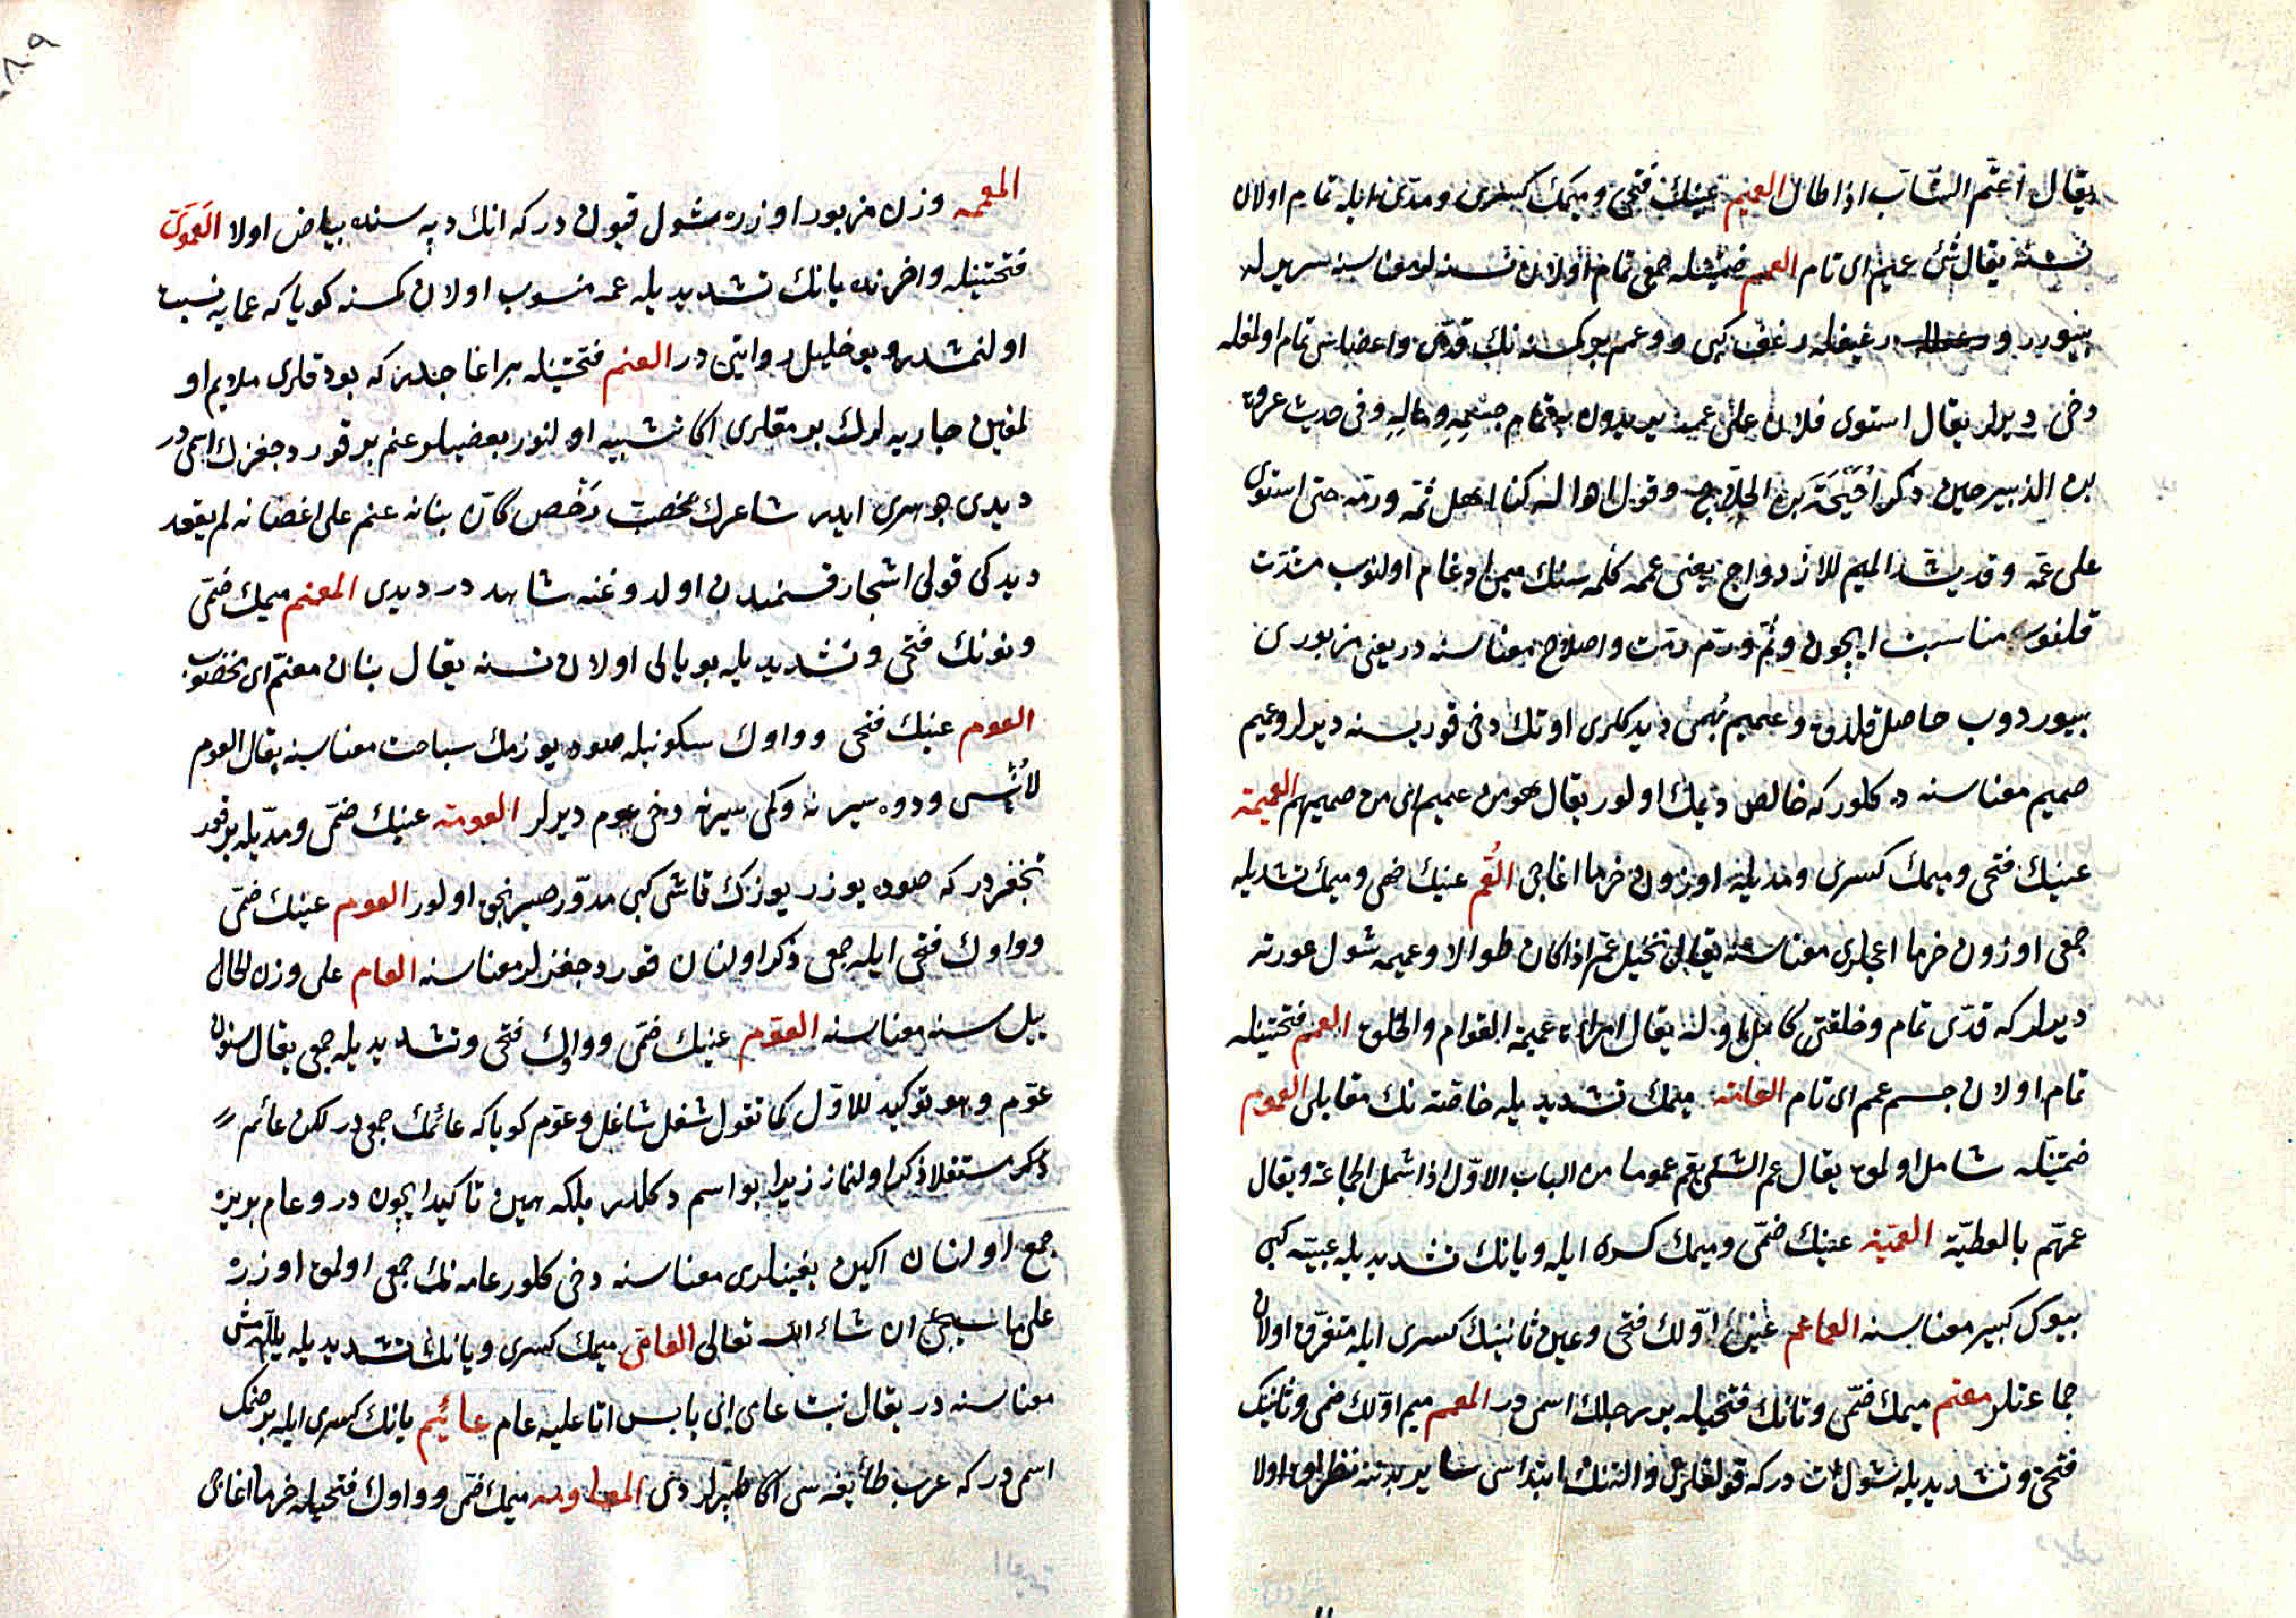 يقال اعتم النبات اذا طال العميم عينك فتحى وميمك كسرى ومدى ايله تمام اولان
نسنه يقال شئ عميم اى تام العمم ضمتينله جمعى تمام اولان نسنه لر معناسنه سرير له
سرر و رغيفله رغف كبى و عمم بر كمسنه نك قدى واعضاسى تمام اولمغله
دخى ديرلر يقال استوى فلان على عممه يريدون به تمام جسمه وماله وفى حديث عروة
بن الزبير حين ذكر احيحة بن الجلاح وقول اخواله كنا اهل ثمه ورمه حتى استوى
على عمه وقد يشدد الميم للازدواج يعنى عممه كلمه سنك ميمى ادغام اولنوب مشدد
قلنور مناسبت ايچون وثم ورم مرمت واصلاح معناسنه در يعنى مزبورى
بيوردوب حاصل قلدق وعميم بهمى ديدكلرى اوتك دخى قوريسنه ديرلر وعميم
صميم معناسنه ده كلور كه خالص ديمك اولور يقال هو من عميم اى من صميمهم العميمة
عينك فتحى وميمك كسرى ومديله اوزون خرما اغاجى العم عينك ضمى وميمك تشديديله
جمعى اوزون خرما اغاجلرى معناسنه يقال نخيل عم اذا كان طوالا وعميمه شول عورته
ديرلر كه قدى تمام وخلقتى كامل اوله يقال امراة عميمة القوام والخلق العمم فتحتينله
تمام اولان جسم عمم اى تام العامة ميمك تشديديله خاصه نك مقابلى العموم
ضمتينله شامل اولمق يقال عم الشئ يعم عموما من الباب الاول اذا شمل الجماعة ويقال
عمهم بالعطية العمية عينك ضمى وميمك كسره ايله ويانك تشديديله عبيه كبى
بيوك كبير معناسنه العماعم عين اولك فتحى وعين ثانينك كسرى ايله متفرق اولان
جماعتلر معتم ميمك ضمى وتانك فتحيله بر رجلك اسمى در المعمم ميم اولك ضمى وثانينك
فتحى وتشديديله شول ات در كه قولقلرى والننك ابتداسى سائر بدننه نظر اق اولا
المعممه وزن مزبور اوزره شول قيون در كه انك دپه سنده بياض اولا العموى
فتحتينله واخرنده يانك تشديديله عمه منسوب اولان كمسنه كويا كه عمايه نسبت
اولنمشدر وبو خليل روايتى در العنم فتحتينله بر اغاجدر كه بوداقلرى ملايم او
لمغين جاريه لرك برمقلرى اكا تشبيه اولنور بعضيلر عنم بر قوردجغزك اسمى در
ديدى جوهرى ايدر شاعرك بمخضب رخص كان بنانه عنم على اغصانه لم يعقد
ديدكى قولى اشجار قسمندن اولدوغنه شاهد در ديدى المعنم ميمك ضمى
ونونك فتحى وتشديديله بويالى اولان نسنه يقال بنان معنم اى مخضوب
العوم عينك فتحى وواوك سكونيله صوده يوزمك سباحت معناسنه يقال العوم
لا ينسى ودوه سيرنه وكمى سيرنه دخى عوم ديرلر العومة عينك ضمى ومديله بر قورد
جغزدر كه صوده يوزر يوزك قاشى كبى مدور صيرنجق اولور العوم عينك ضمى
وواوك فتحى ايله جمعى ذكر اولنان قوردجغزلر معناسنه العام على وزن الحال
ييل سنه معناسنه العوم عينك ضمى وواوك فتحى وتشديديله جمعى يقال سنون
عوم وهو توكيد للاول كما تقول شغل شاغل وعوم كويا كه عائمك جمعى در لكن عائم
ذكر مستقلا ذكر اولنماز زيرا بو اسم دكلدر بلكه همين تاكيد ايچون در وعام بريره
جمع اولنان اكين بغينلرى معناسنه دخى كلور عامه نك جمعى اولمق اوزره
على ما سيجئ ان شاء الله تعالى العامى ميمك كسرى ويانك تشديديله ييللنمش
معناسنه در يقال نبت عامى اى يابس اتى عليه عام عائم يانك كسرى ايله بر صنمك
اسمى در كه عرب طائفه سى اكا طپرلردى المعاومه ميمك ضمى وواوك فتحيله خرما اغاجى